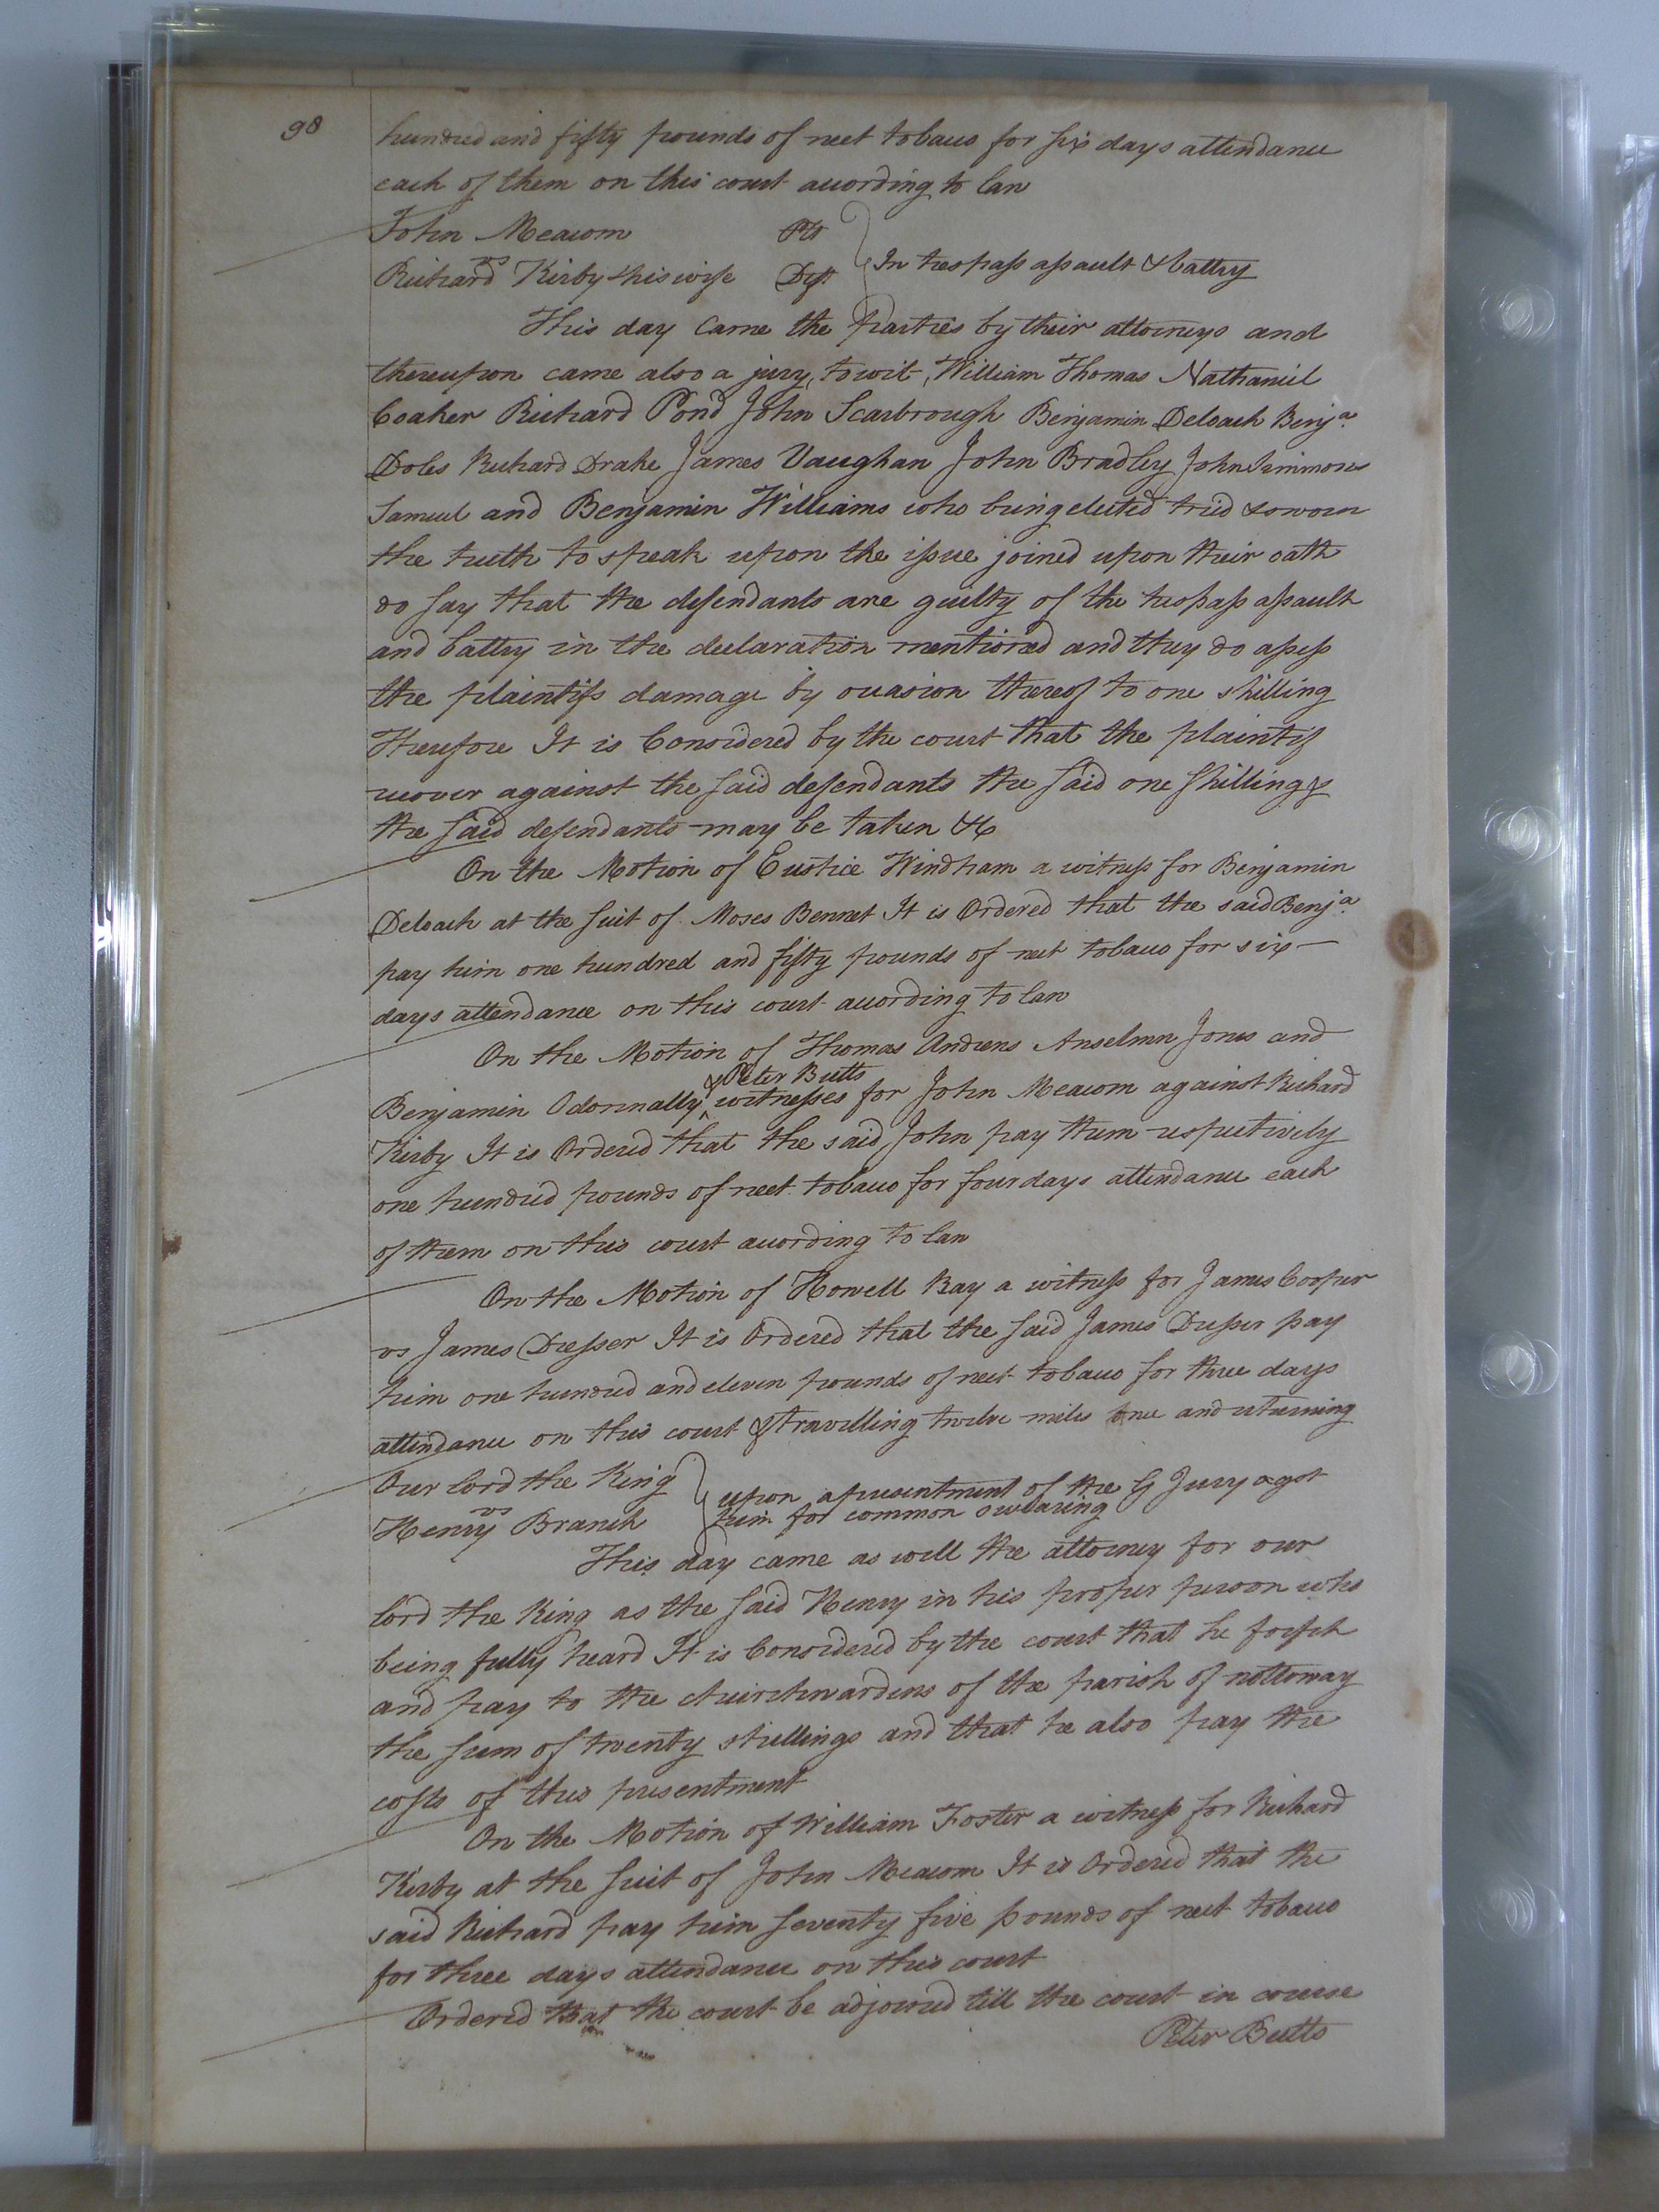 98
hundred and fifty pounds of neet tobacco for six days attendance
each of them on this court according to law
John Meacom Plt
vs
Richard Kirby & his wife Deft In trespass assault & battry
This day Came the Parties by their attorneys and
thereupon came also a jury, to wit, William Thomas Nathaniel
Coaker Richard Pond John Scarbrough Benjamin Deloach Benja
Doles Richard Drake James Vaughan John Bradley John Simmons
Samuel and Benjamin Williams who being elected tried & sworn
the truth to speak upon the issue joined upon their oath
do say that the defendants are guilty of the trespass assault
and battry in the declaration mentioned and they do assess
the plaintifs damage by occasion thereof to one shilling
Therefore It is Considered by the court that the plaintif
recover against the said defendants the said one shilling &
the said defendants may be taken &c
On the Motion of Eustice Windham a witness for Benjamin
Deloach at the suit of Moses Bennet It is Ordered that the said Benja
pay him one hundred and fifty pounds of neet tobacco for six
days attendance on this court according to law
On the Motion of Thomas Andrens Anselmn Jones and
& Peter Butts
Benjamin Odonnally witnesses for John Meacom against Richard
Kirby It is Ordered that the said John pay them respectively
one hundred pounds of neet tobacco for four days attendance each
of them on this court according to law
On the Motion of Howell Ray a witness for James Cooper
vs James Dresser It is Ordered that the said James Dresser pay
him one hundred and eleven pounds of neet tobacco for three days
attendance on this court & travelling twelve miles once and returning
Our lord the King
vs
upon a presentment of the G Jury agst
Henry Branch him for common swearing
This day came as well the attorney for our
lord the King as the said Henry in his proper person who
being fully heard It is Considered by the court that he forfeit
and pay to the churchwardens of the parish of nottoway
the sum of twenty shillings and that he also pay the
costs of this presentment
On the Motion of William Foster a witness for Richard
Kirby at the suit of John Meacom It is Ordered that the
said Richard pay him seventy five pounds of neet tobacco
for three days attendance on this court
Ordered that the court be adjorned till the court in course
Peter Butts